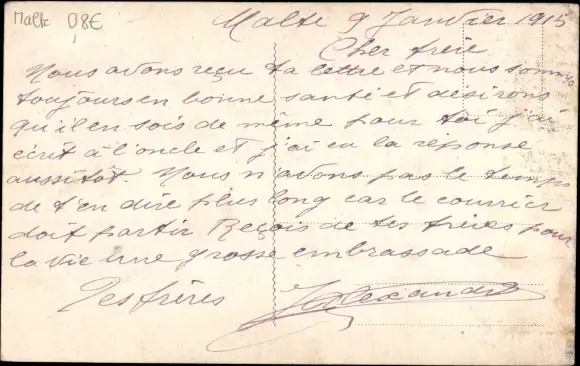 Malte 08€
Malte 9 Janvier 1915
Cher frère
Nous avons reçu ta lettre et nous sommes
toujours en bonne santé et désirons
qu'il en sois de même pour toi j'ai
écrit à l'oncle et j'ai eu la réponse
aussitôt. Nous n'avons pas le temps
de t'en dire plus long car le courrier
doit partir Reçois de tes frères pour
la vie une grosse embrassade
Tes frères
Alexandre